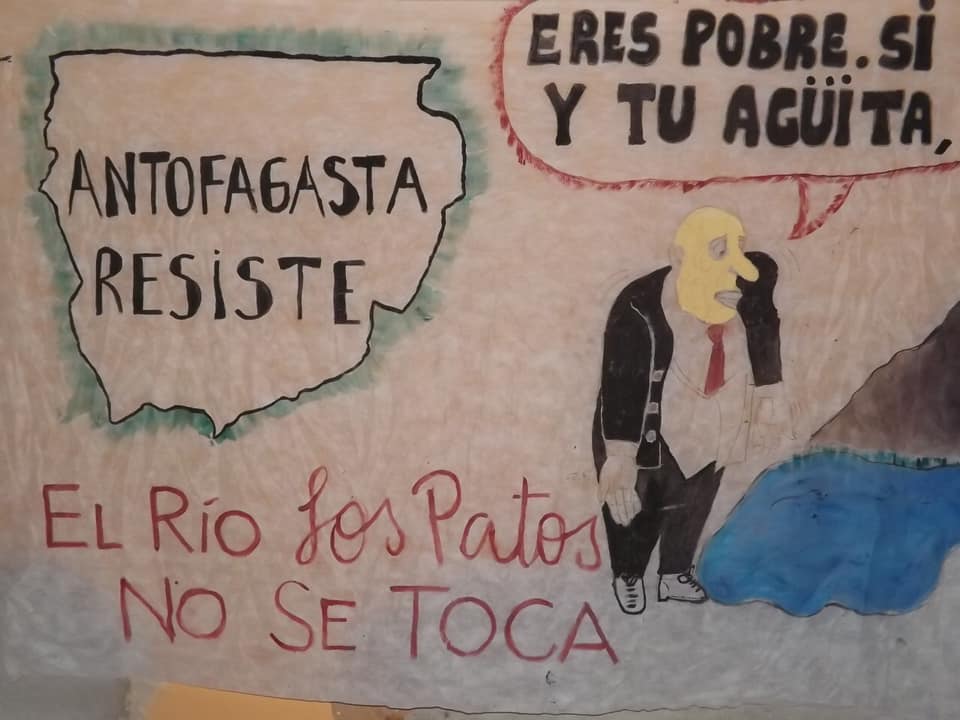 ANTOFAGASTA
RESISTE
ERES POBRE. SI
Y TU AGÜÏTA,
EL RÍO Los Patos
NO SE TOCA